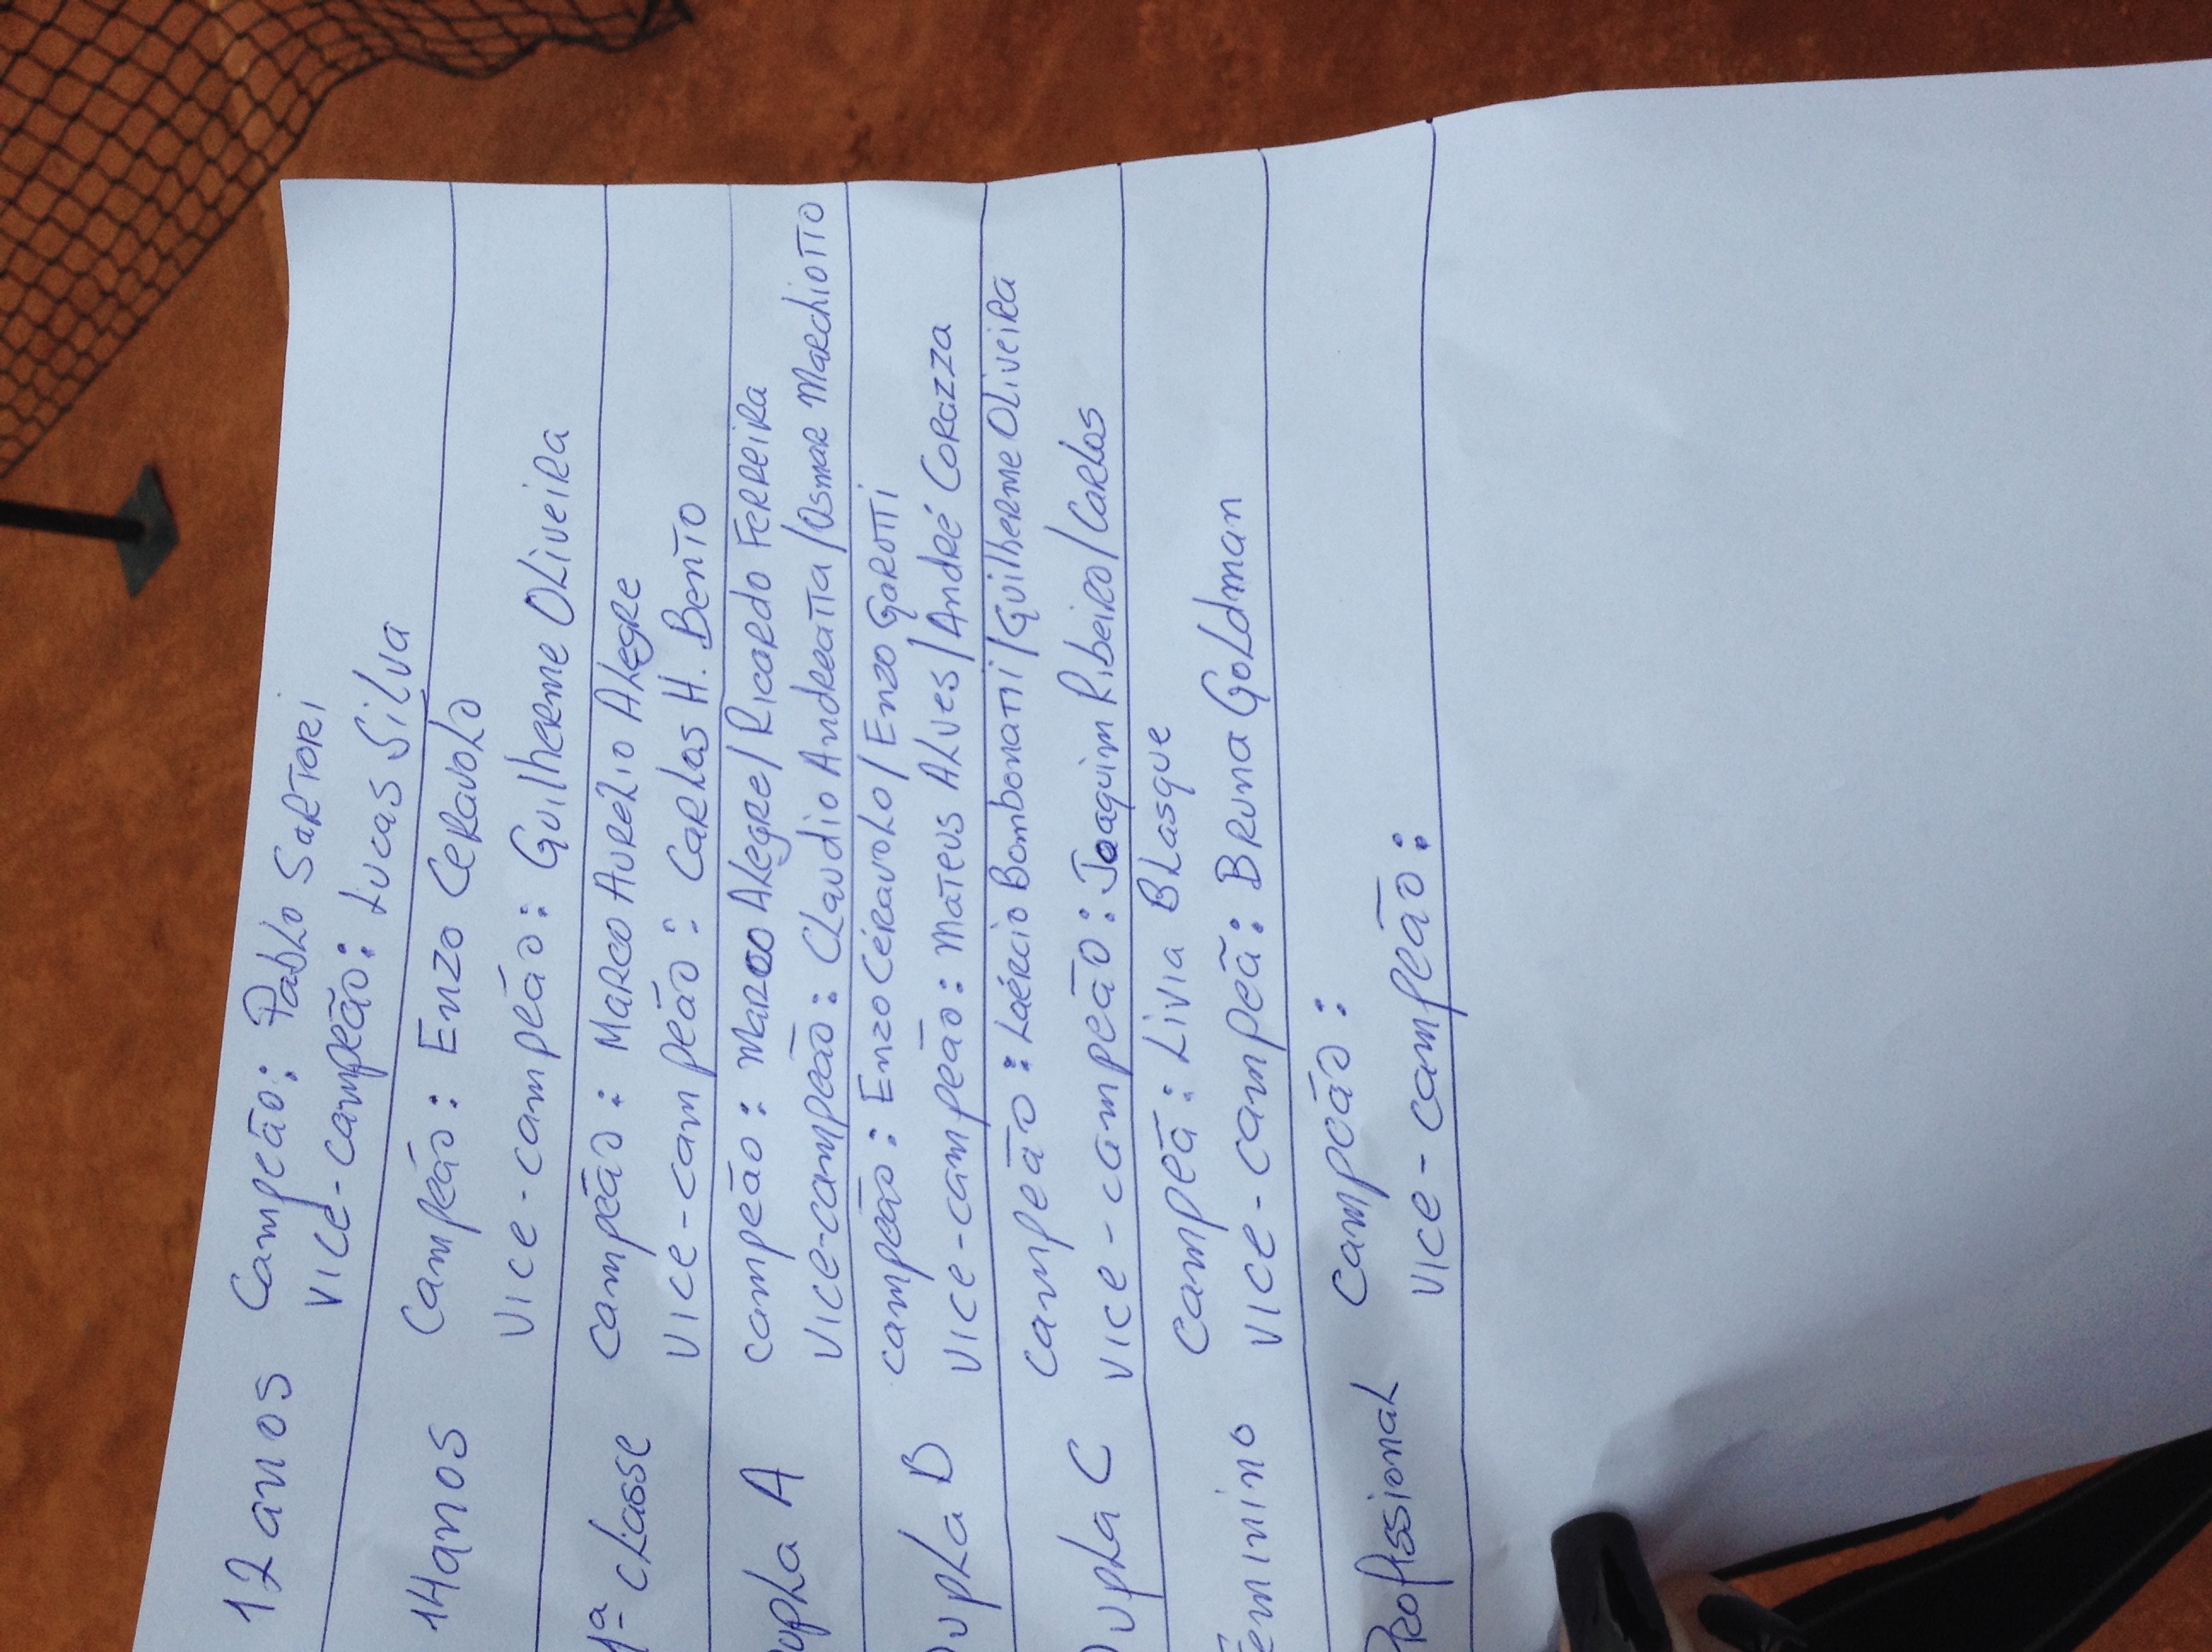 12 anos Campeão: Pablo Sartori
Vice-campeão: Lucas Silva
14 anos Campeão: Enzo Ceravolo
Vice-campeão: Guilherme Oliveira
1ª classe Campeão: Marco Aurelio Alegre
Vice-campeão: Carlos H. Bento
Dupla A campeão: Marco Alegre/Ricardo Ferreira
Vice-campeão: Claudio Andreatta/Osmar Marchiotto
Dupla B campeão: Enzo Céravolo/Enzo Garotti
Vice-campeão: Mateus Alves/André Corazza
Dupla C Campeão: Laércio Bombonatti/Guilherme Oliveira
Vice-campeão: Joaquim Ribeiro/Carlos
Feminino Campeã: Livia Blasque
Vice-campeã: Bruna Goldman
Profissional Campeão:
Vice-campeão: